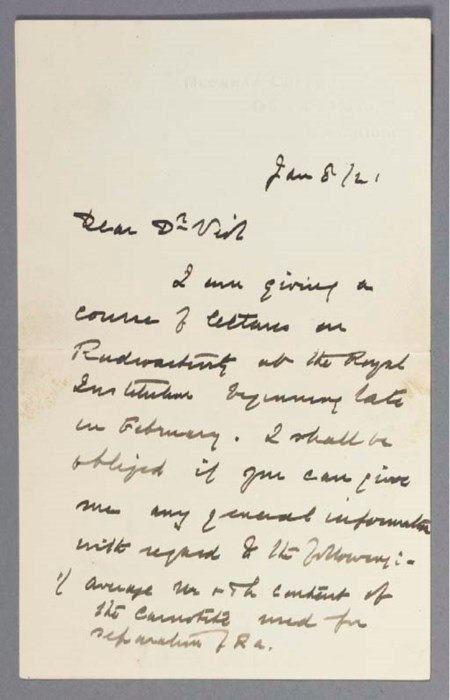 Jan 8/21
Dear Dr Viol
I am giving a
course of lectures on
Radioactivity at the Royal
Institution beginning late
in February. I shall be
obliged if you can give
me any general information
with regard to the following:-
1/ average Ur + Th content of
the Carnotite used for
separation of Ra.